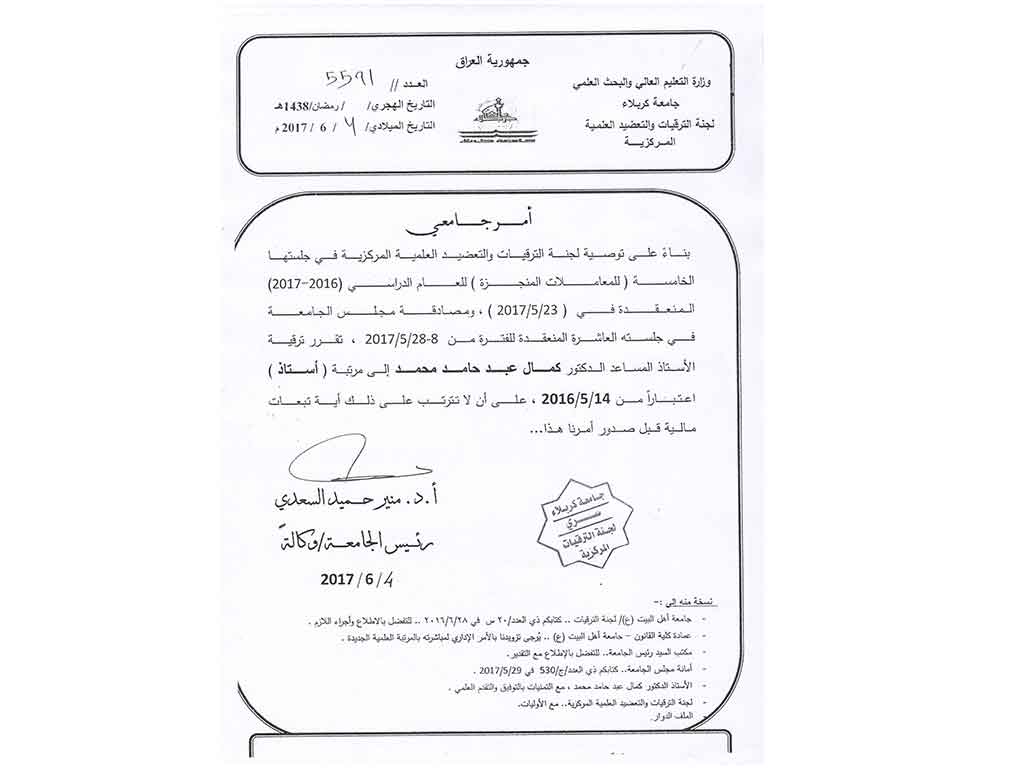 جمهورية العراق
وزارة التعليم العالي والبحث العلمي
جامعة كربلاء
لجنة الترقيات والتعضيد العلمية
المركزية
العدد // 5591
التاريخ الهجري/ / رمضان/1438هـ
التاريخ الميلادي/ 4 / 6 / 2017 م
أمر جامعي
بناءً على توصية لجنة الترقيات والتعضيد العلمية المركزية في جلستها
الخامسة ( للمعاملات المنجزة ) للعام الدراسي (2016-2017)
المنعقدة في ( 2017/5/23 ) ، ومصادقة مجلس الجامعة
في جلسته العاشرة المنعقدة للفترة من 8-2017/5/28 ، تقرر ترقية
الأستاذ المساعد الدكتور كمال عبد حامد محمد إلى مرتبة ( أستاذ )
اعتباراً من 2016/5/14 ، على أن لا تترتب على ذلك أية تبعات
مالية قبل صدور أمرنا هذا...
أ.د. منير حميد السعدي
رئيس الجامعة/وكالةً
2017 / 6 / 4
جامعة كربلاء
سري
لجنة الترقيات
المركزية
نسخة منه إلى :-
- جامعة أهل البيت (ع)/ لجنة الترقيات .. كتابكم ذي العدد/٢٠ س في ٢٠١٦/٦/٢٨ .. للتفضل بالاطلاع وأجراء اللازم .
- عمادة كلية القانون – جامعة أهل البيت (ع) .. يُرجى تزويدنا بالأمر الإداري لمباشرته بالمرتبة العلمية الجديدة .
- مكتب السيد رئيس الجامعة.. للتفضل بالإطلاع مع التقدير.
- أمانة مجلس الجامعة.. كتابكم ذي العدد/ج/530 في 2017/5/29 .
- الأستاذ الدكتور كمال عبد حامد محمد ، مع التمنيات بالتوفيق والتقدم العلمي .
- لجنة الترقيات والتعضيد العلمية المركزية.. مع الأوليات.
- الملف الدوار.